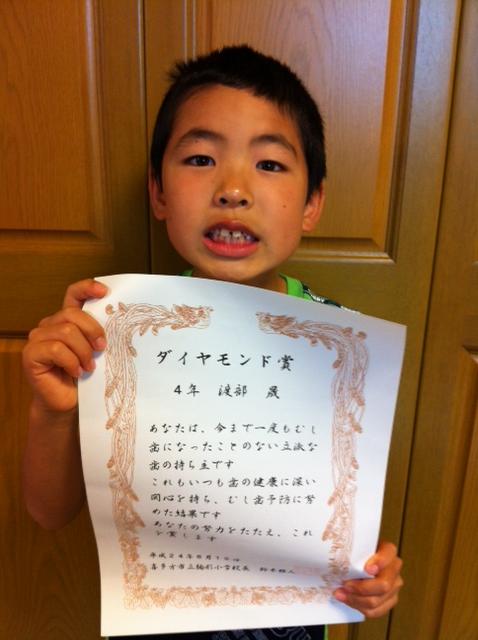 ダイヤモンド賞
4年 渡部 晟
あなたは、今まで一度もむし
歯になったことのない立派な
歯の持ち主です
これもいつも歯の健康に深い
関心を持ち、むし歯予防に努
めた結果です
あなたの努力をたたえ、これ
を賞します
平成24年
喜多方市立 小学校長 鈴木